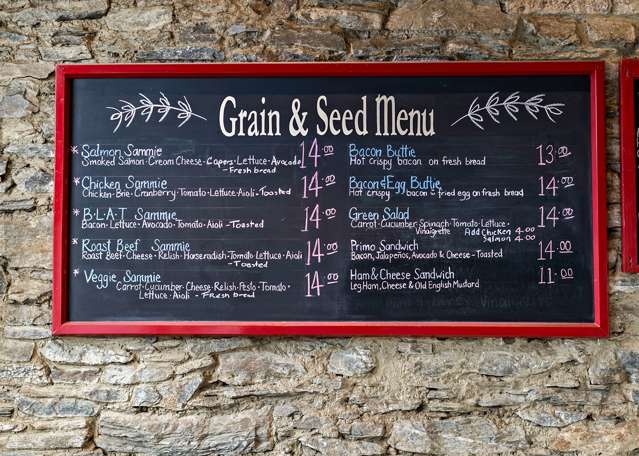 Grain & Seed Menu
* Salmon Sammie 14.00
Smoked Salmon·Cream Cheese·Capers·Lettuce·Avocado
- Fresh bread
* Chicken Sammie 14.00
Chicken·Brie·Cranberry·Tomato·Lettuce·Aioli - Toasted
* B·L·A·T Sammie 14.00
Bacon·Lettuce·Avocado·Tomato·Aioli - Toasted
* Roast Beef Sammie 14.00
Roast Beef·Cheese·Relish·Horseradish·Tomato·Lettuce·Aioli
- Toasted
* Veggie Sammie 14.00
Carrot·Cucumber·Cheese·Relish·Pesto·Tomato·
Lettuce·Aioli - Fresh bread
Bacon Buttie 13.00
Hot crispy bacon on fresh bread
Bacon & Egg Buttie 14.00
Hot crispy bacon & fried egg on fresh bread
Green Salad 14.00
Carrot·Cucumber·Spinach·Tomato·Lettuce·
Vinaigrette Add Chicken 4.00
Salmon 4.00
Primo Sandwich 14.00
Bacon, Jalapeños, Avocado & Cheese - Toasted
Ham & Cheese Sandwich 11.00
Leg Ham, Cheese & Old English Mustard